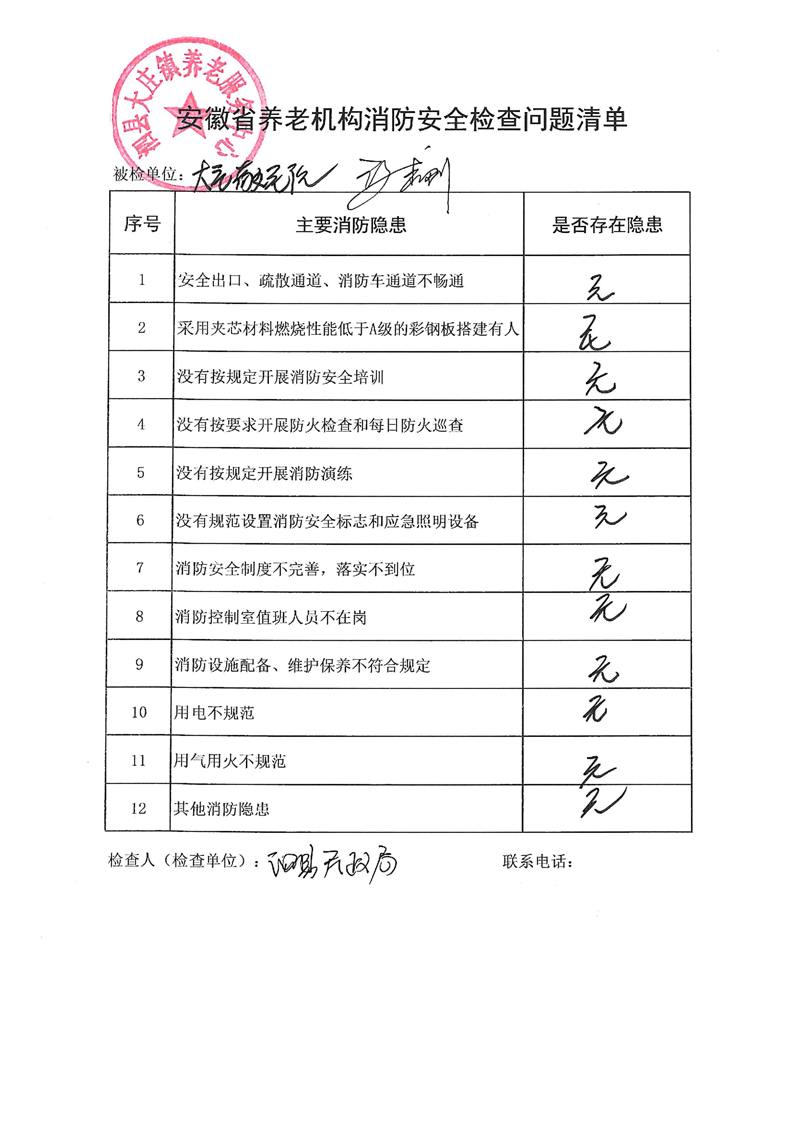 泗县大庄镇养老服务中心
安徽省养老机构消防安全检查问题清单
被检单位：大庄敬老院
序号 主要消防隐患 是否存在隐患
1 安全出口、疏散通道、消防车通道不畅通 无
2 采用夹芯材料燃烧性能低于A级的彩钢板搭建有人 无
3 没有按规定开展消防安全培训 无
4 没有按要求开展防火检查和每日防火巡查 无
5 没有按规定开展消防演练 无
6 没有规范设置消防安全标志和应急照明设备 无
7 消防安全制度不完善，落实不到位 无
8 消防控制室值班人员不在岗 无
9 消防设施配备、维护保养不符合规定 无
10 用电不规范 无
11 用气用火不规范 无
12 其他消防隐患 无
检查人（检查单位）：泗县民政局 联系电话：